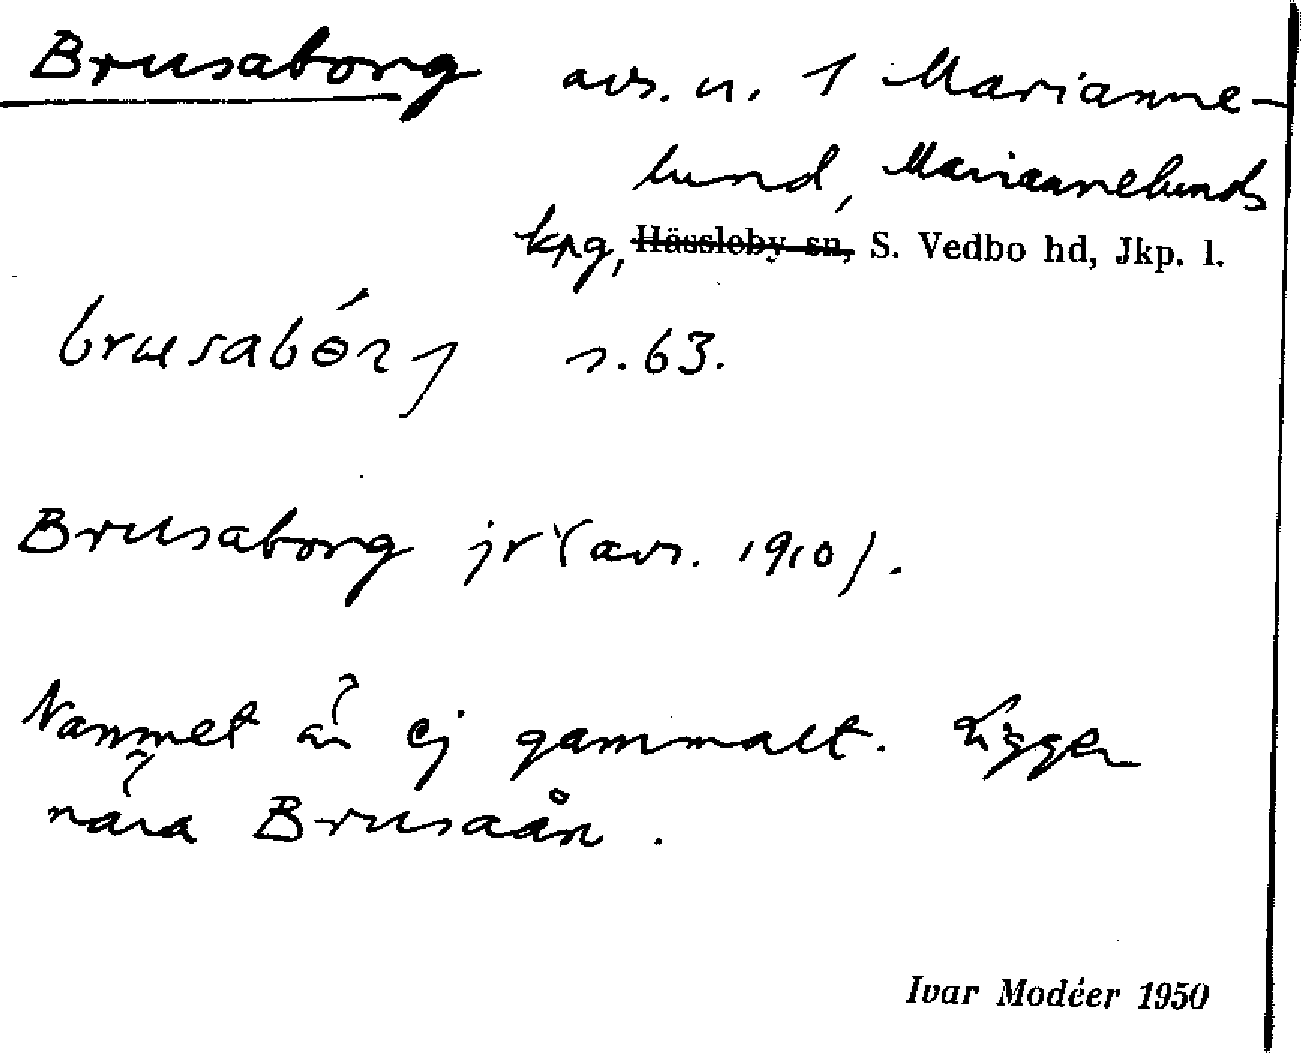 Brusaborg avs. u. 1 Marianne-
lund, Mariannelunds
kpg, Hässleby sn, S. Vedbo hd, Jkp. l.
s. 63.
Brusaborg jr (avs. 1910).
Namnet är ej gammalt. Ligger
nära Brusaån.
Ivar Modéer 1950